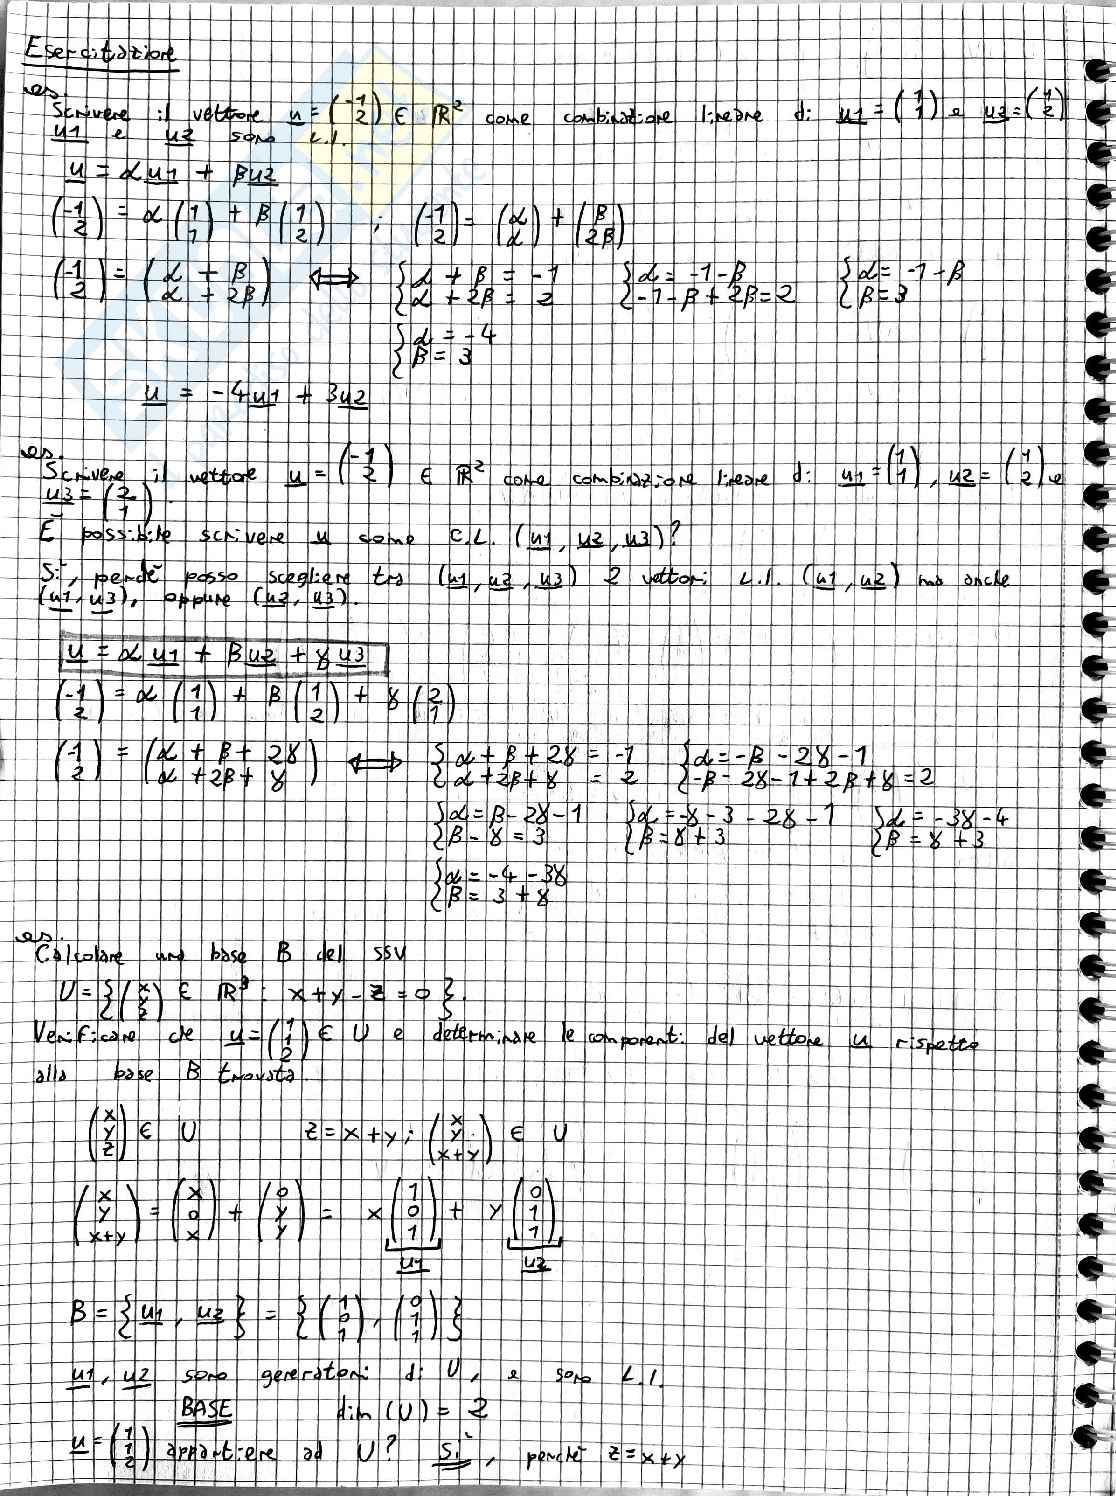 Esercitazione
es.
Scrivere il vettore u = (-1 2) ∈ ℝ² come combinazione lineare di u1 = (1 1) e u2 = (1 2)
u1 e u2 sono L.I.
u = αu1 + βu2
(-1 2) = α (1 1) + β (1 2) ; (-1 2) = (α α) + (β 2β)
(-1 2) = (α + β α + 2β) ⟺ {α + β = -1 α + 2β = 2 {α = -1-β -1-β+2β=2 {α = -1-β β=3
{α = -4 β = 3
u = -4u1 + 3u2
es.
Scrivere il vettore u = (-1 2) ∈ ℝ² come combinazione lineare di u1 = (1 1), u2 = (1 2) e
u3 = (2 1).
È possibile scrivere u come C.L. (u1, u2, u3)?
Sì, perché posso scegliere tra (u1, u2, u3) 2 vettori L.I. (u1, u2) ma anche
(u1, u3), oppure (u2, u3).
u = αu1 + βu2 + γu3
(-1 2) = α (1 1) + β (1 2) + γ (2 1)
(-1 2) = (α + β + 2γ α + 2β + γ) ⟺ {α + β + 2γ = -1 α + 2β + γ = 2 {α = -β - 2γ - 1 -β - 2γ - 1 + 2β + γ = 2
{α = β - 2γ - 1 β - γ = 3 {α = -γ - 3 - 2γ - 1 β = γ + 3 {α = -3γ - 4 β = γ + 3
{α = -4 - 3γ β = 3 + γ
es.
Calcolare una base B del SSV
U = {(x y z) ∈ ℝ³ : x + y - z = 0}.
Verificare che u = (1 1 2) ∈ U e determinare le componenti del vettore u rispetto
alla base B trovata.
(x y z) ∈ U z = x + y ; (x y x+y) ∈ U
(x y x+y) = (x 0 x) + (0 y y) = x (1 0 1) + y (0 1 1)
u1 u2
B = {u1, u2} = {(1 0 1), (0 1 1)}
u1, u2 sono generatori di U, e sono L.I.
BASE dim (U) = 2
u = (1 1 2) appartiene ad U? Sì, perché z = x + y